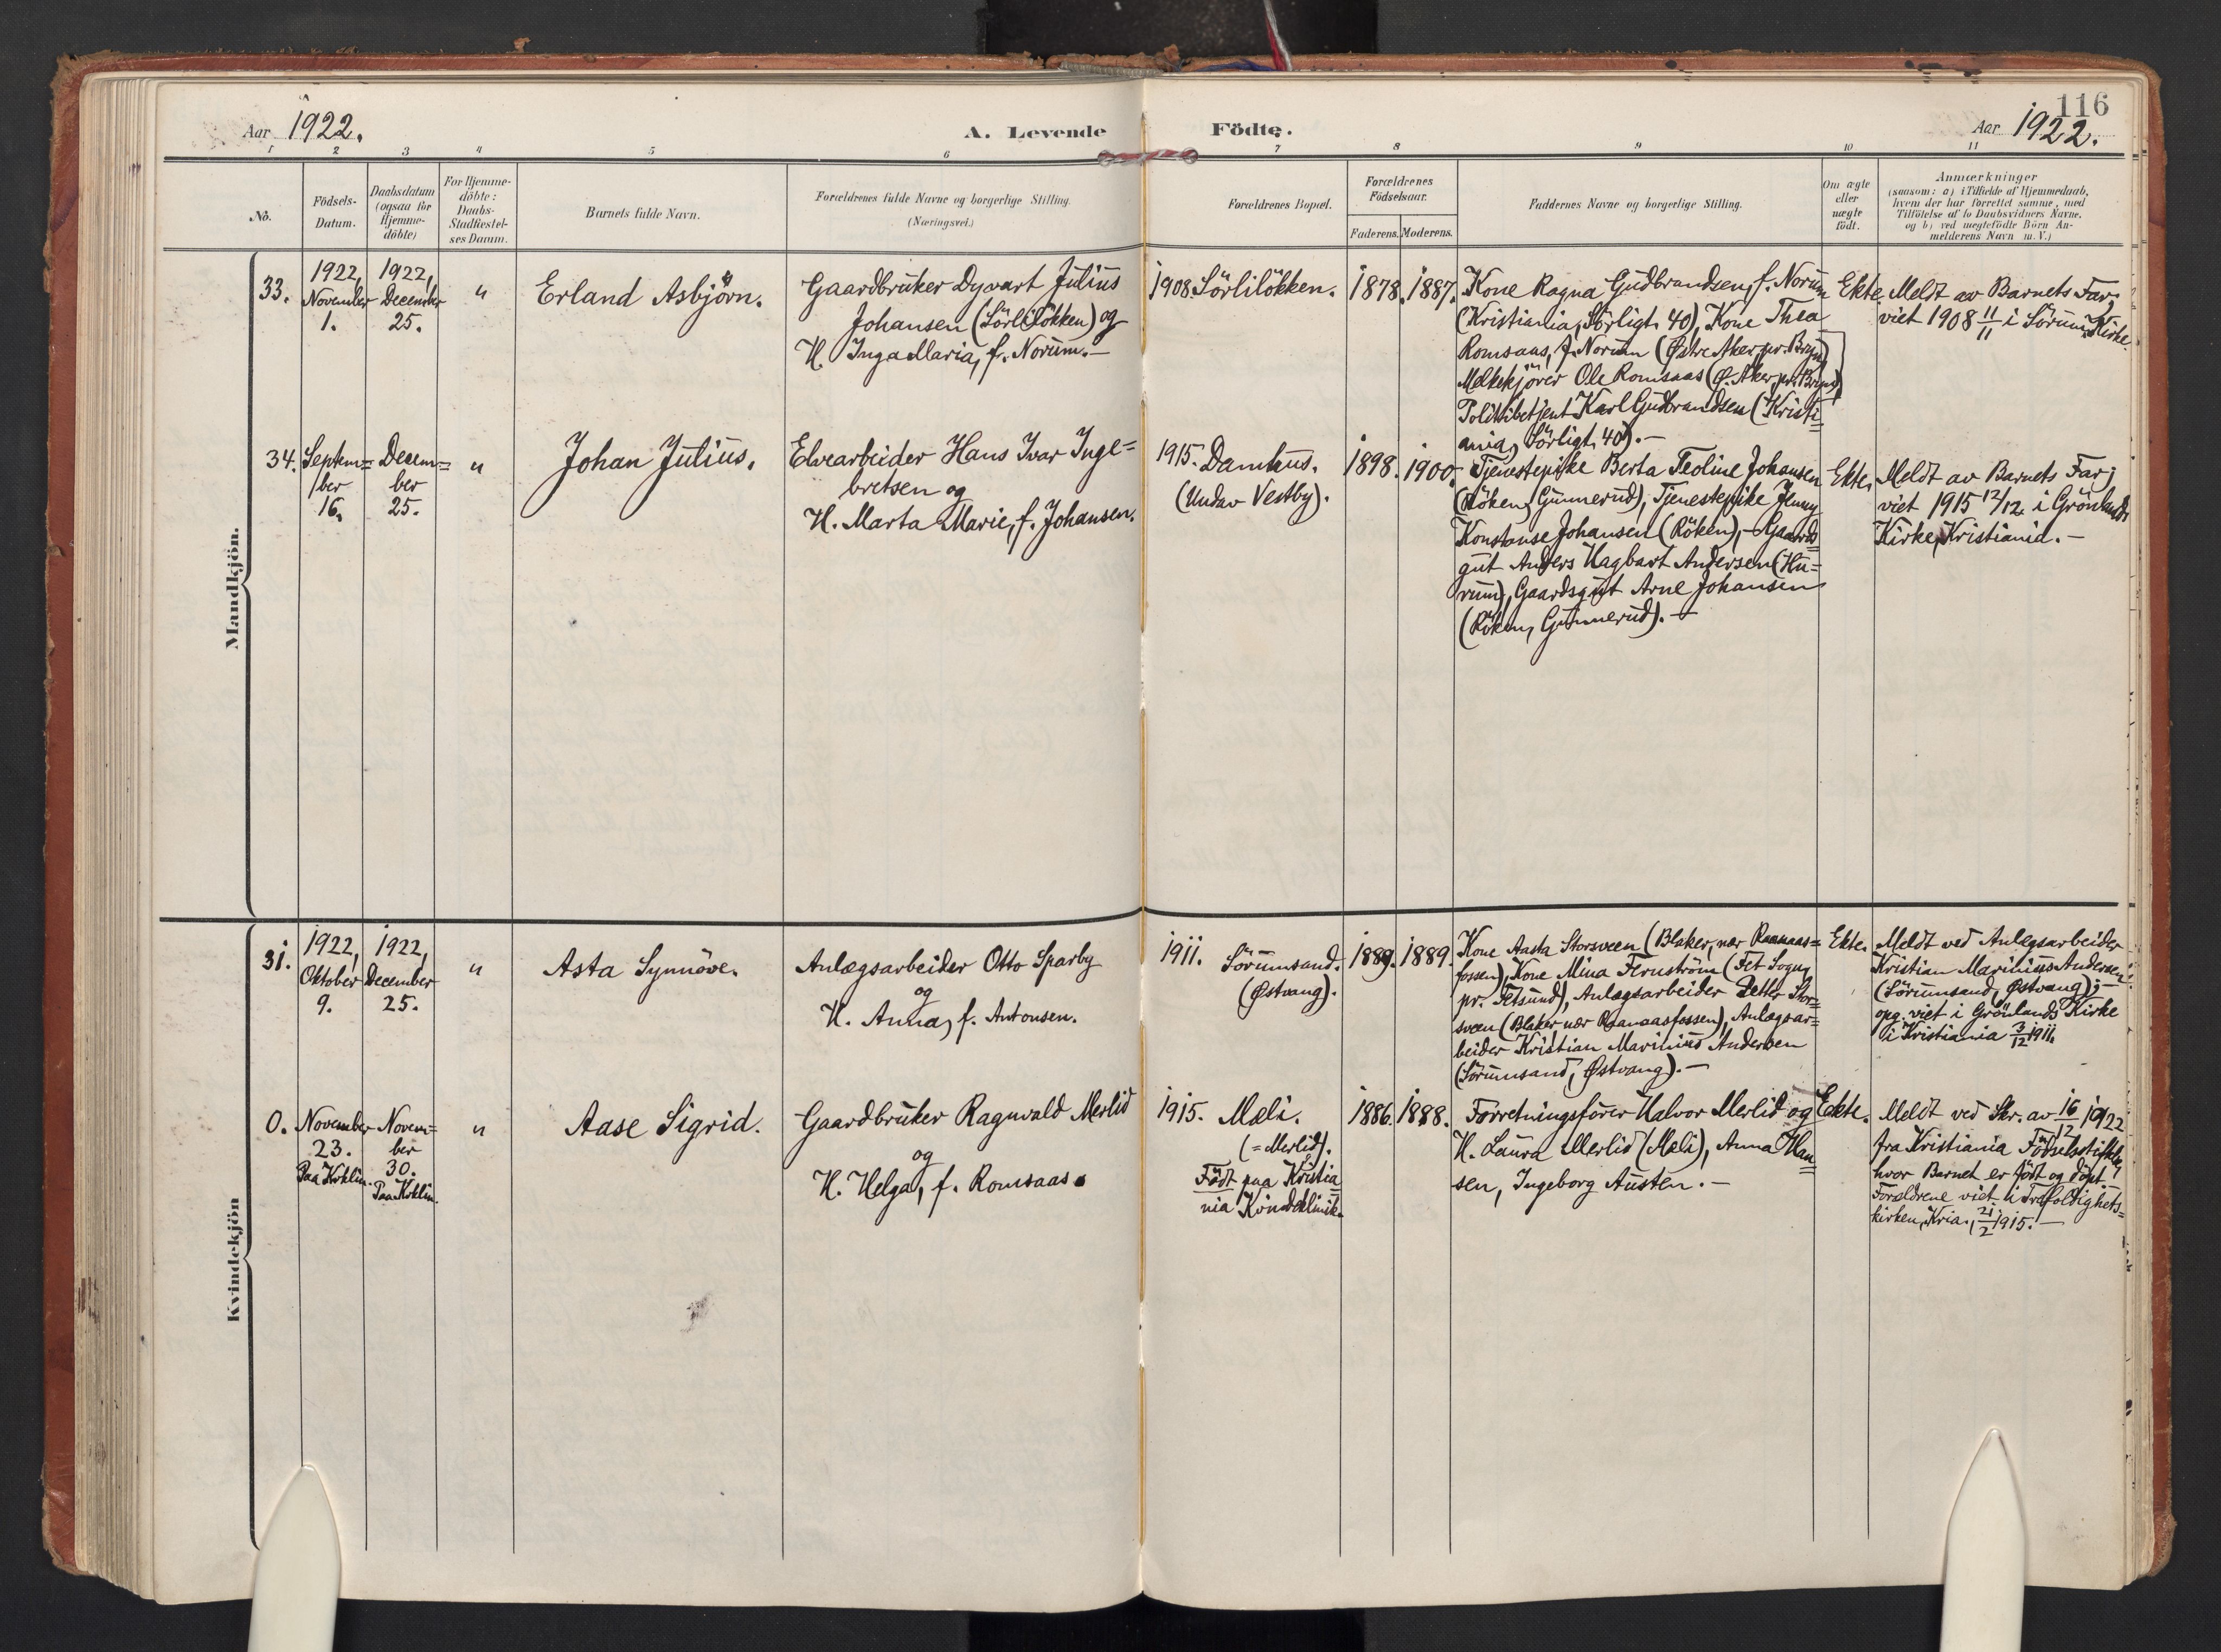 116
Aar 1922.
A. Levende Födte.
Aar 1922.
1 2 3 4 5 6 7 8 9 10 11
No.
Födsels-
Datum.
Daabsdatum
(ogsaa for
Hjemme-
döbte)
For Hjemme-
döbte:
Daabs-
Stadfæstel-
ses Datum.
Barnets fulde Navn.
Forældrenes fulde Navne og borgerlige Stilling.
(Næringsvei.)
Forældrenes Bopæl.
Forældrenes
Födselsaar.
Faderens. Moderens.
Faddernes Navne og borgerlige Stilling.
Om ægte
eller
uægte
födt.
Anmærkninger
(saasom: a) i Tilfælde af Hjemmedaab,
hvem der har forrettet samme, med
Tilföielse af to Daabsvidners Navne,
og b) ved uegtefödte Börn An-
melderens Navn m. V.)
Mandkjön.
33.
1922,
November
1.
1922,
December
25.
"
Erland Asbjörn.
Gaardbruker Dyvart Julius
Johansen (Sörlilökken) og
H. Inga Maria, f. Norum.-
1908. Sörlilökken.
1878. 1887.
Kone Ragna Gudbrandsen, f. Norum
(Kristiania, Sörligt. 40), Kone Thea
Romsaas, f. Norum (Østre Aker pr. Bryn)
Melkekjörer Ole Romsaas (Ø. Aker pr. Bryn),
Politibetjent Karl Gudbrandsen (Kristi=
ania, Sörligt. 40).-
Ekte.
Meldt av Barnets Far;
viet 1908 11/11 i Sörum Kirke.
34.
Septem=
ber
16.
Decem=
ber
25.
"
Johan Julius.
Elvearbeider Hans Ivar Inge=
bretsen og
H. Marta Marie, f. Johansen.
1915. Damhus.
(Undav Vestby).
1898. 1900.
Tjenestepike Berta Teoline Johansen
(Röken, Gunnerud), Tjenestepike Jenny
Konstanse Johansen (Röken), Gaards=
gut Anders Hagbart Andersen (Hu=
rum), Gaardsgut Arne Johansen
(Röken, Gunnerud).-
Ekte.
Meldt av Barnets Far;
viet 1915 12/12 i Grönlands
Kirke, Kristiania.-
Kvindekjön
31.
1922,
Oktober
9.
1922,
December
25.
"
Asta Synnöve.
Anlægsarbeider Otto Sparby
og
H. Anna, f. Antonsen.
1911. Sörumsand.
(Østvang).
1889. 1889.
Kone Aasta Storsveen (Blaker, nær Raanaas=
fossen), Kone Mina Fernström (Fet Sogn,
pr. Fetsund), Anlægsarbeider Stor=
sveen (Blaker nær Raanaasfossen), Anlægsar=
beider Kristian Marinius Andersen
(Sörumsand, Østvang).-
Ekte.
Meldt ved Anlægsarbeider
Kristian Marinius Andersen
(Sörumsand, Østvang);-
opg. viet i Grönlands Kirke
i Kristiania 3/12 1911.
0.
November
23.
Paa Kvklin.
Novem=
ber
30.
Paa Kvklin.
"
Aase Sigrid.
Gaardbruker Ragnvald Merlid
og
H. Helga, f. Romsaas.
1915. Mæli.
(=Merlid).
Födt paa Kristia
nia Kvindeklinik.
1886. 1888.
Forretningsförer Halvor Merlid og
H. Laura Merlid (Mæli), Anna Han=
sen, Ingeborg Austen.-
Eekte.
Meldt ved Skr. av 16/12 1922
fra Kristiania Födselsstiftelse,
hvor Barnet er födt og döpt.
Forældrene viet i Trefoldighets=
kirken, Kria., 21/2 1915.-